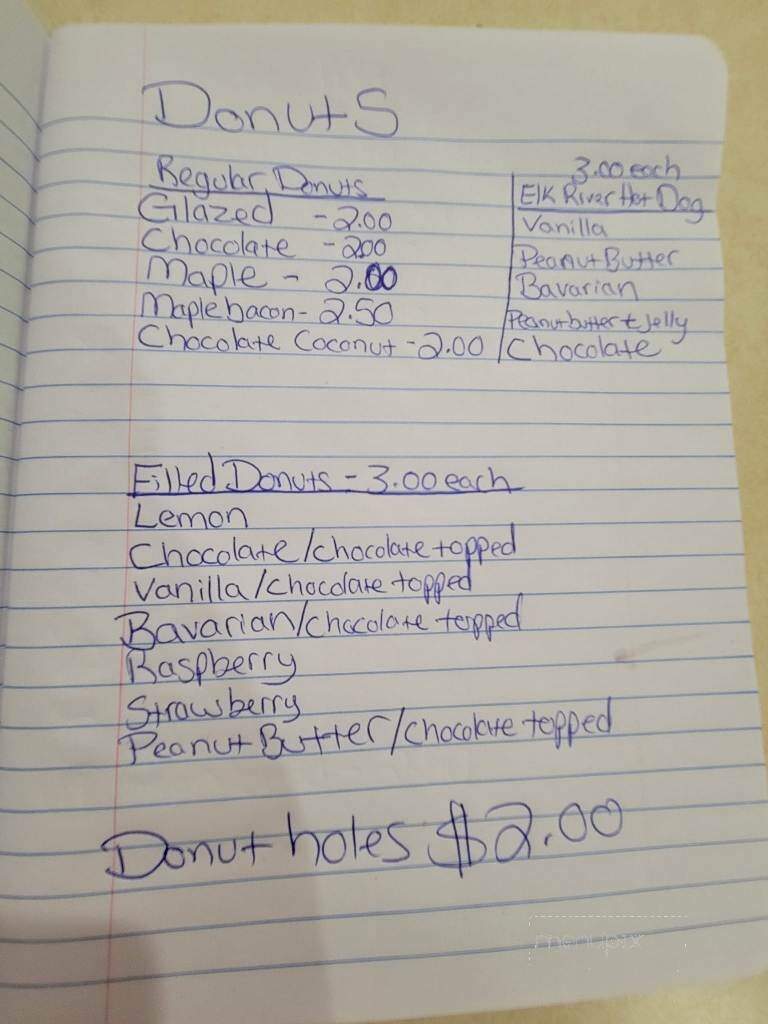 Donuts
Regular Donuts
Glazed - 2.00
Chocolate - 200
Maple - 2.00
Maple bacon - 2.50
Chocolate Coconut - 2.00
3.00 each
Elk River Hot Dog
Vanilla
Peanut Butter
Bavarian
Peanut butter + Jelly
Chocolate
Filled Donuts - 3.00 each
Lemon
Chocolate/chocolate topped
Vanilla/chocolate topped
Bavarian/chocolate topped
Raspberry
Strawberry
Peanut Butter/chocolate topped
Donut holes $2.00
menupix